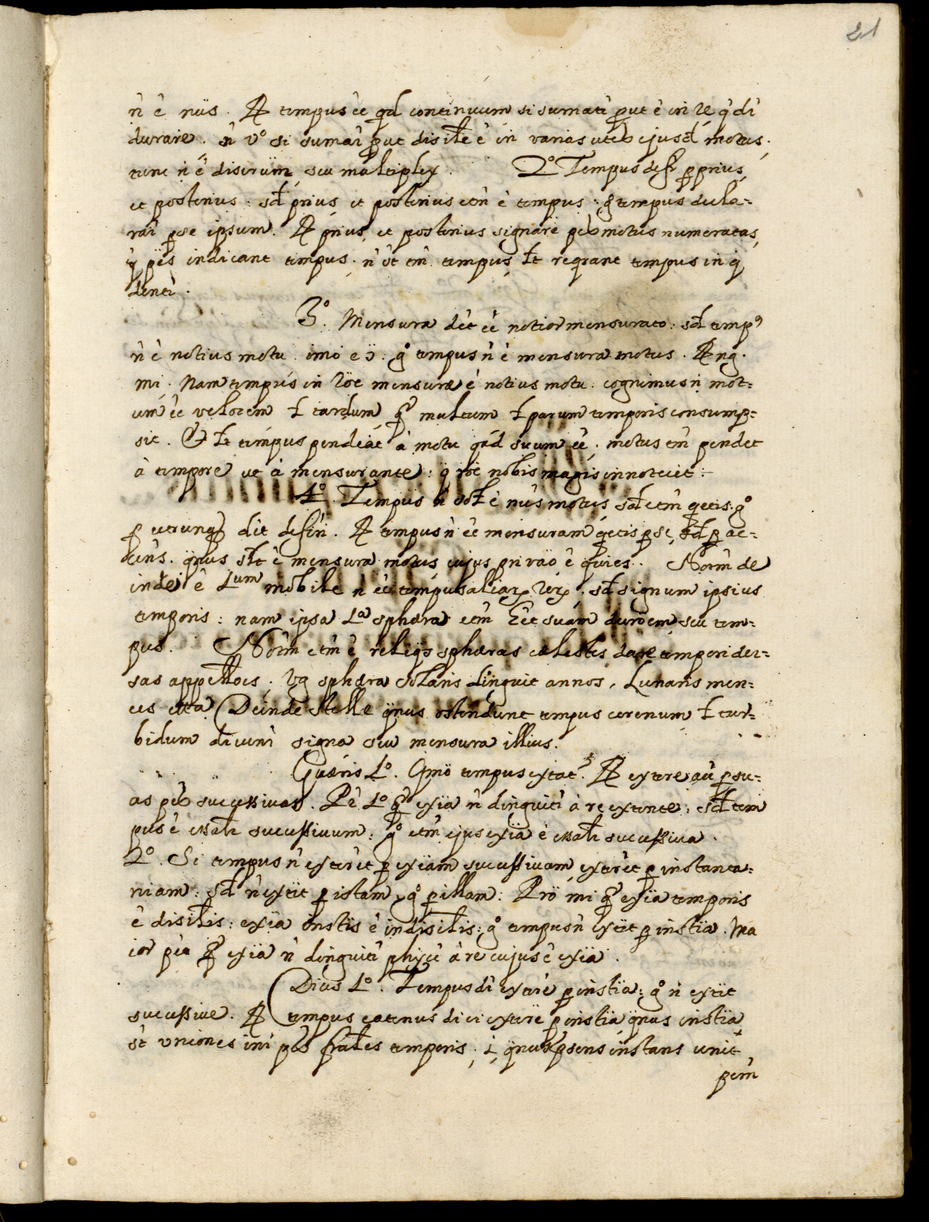 21
n̄ ē nūs. R tempus ēē qd continuum si sumatr̄ put ē in re q̄ dr̄
durare. n̄ vo si sumar̄ put disile ē in varias utes ejusd motus.
tunc n̄ ē discrūm seu multiplex. 2o Tempus defr p prius
et posterius: sd prius et posterius etm ē tempus: g tempus decla-
rar̄ p se ipsum. R prius et posterius signare ptes motus numeratas
q ptes indicant tempus. n̄ ut tempus
denti.
3o. Mensura det ēē notior mensurato: sd temp9
n̄ ē notius motu imo e ɔ: go tempus n̄ ē mensura motus. R ng.
mi. Nam tempus in rōe mensuræ ē notius motu: cognimus n̄ mot-
um ēē velocem t tardum q multum t parum temporis consump-
sit. Et tempus pendeat à motu qd suum ēē. motus em pendet
à tempore ut à mensurante: q rōe nobis magis innotecit:
4o. Tempus n̄ sol ē nus motus sd etm qetis: go
p utrumq det defin. R tempus n̄ ēē mensuram qetis p se, sd p ac-
cens. qnus ē mensura motus cujus privaō ē quies. Norm de
inde ē 1um mobile n̄ ēē tempus aliarx rerx. sd signum ipsius
temporis: nam ipsa 1a sphæra etm suam durōem seu tem-
pus. Norm etm ē reliqs sphæras cælestes dare tempori der-
sas appelloes. Vg sphæra solaris dinguit annos, Lunaris men-
ces Deinde stellæ qnus ostendunt tempus serenum t tur-
bidum dicunr̄ signa seu mensura illius.
Quæris 1o. Qmō tempus extat? R extere au p su-
as ptes successivas. Pr 1o q exia n̄ dinguitr̄ à re extente: sd tem
pus ē essatr successivum: go etm ejus exia ē essatr successiva.
2o. Si tempus n̄ exteret p exiam successivam exteret p instanta-
niam: sd n̄ extit p istam go p illam: Prō mi q exia temporis
ē disilis: exia instis ē indisilis: go tempus n̄ extit p instia. Ma
ior pta q exia n̄ dinguitr̄ phyce à re cujus ē exia.
Dices 1o. Tempus dr̄ extere p instia: go n̄ extit
successive. R tempus eatenus dici extere p instia qnus instia
st uniones inr ptes temporis, i, qnus psens instans unit
pem